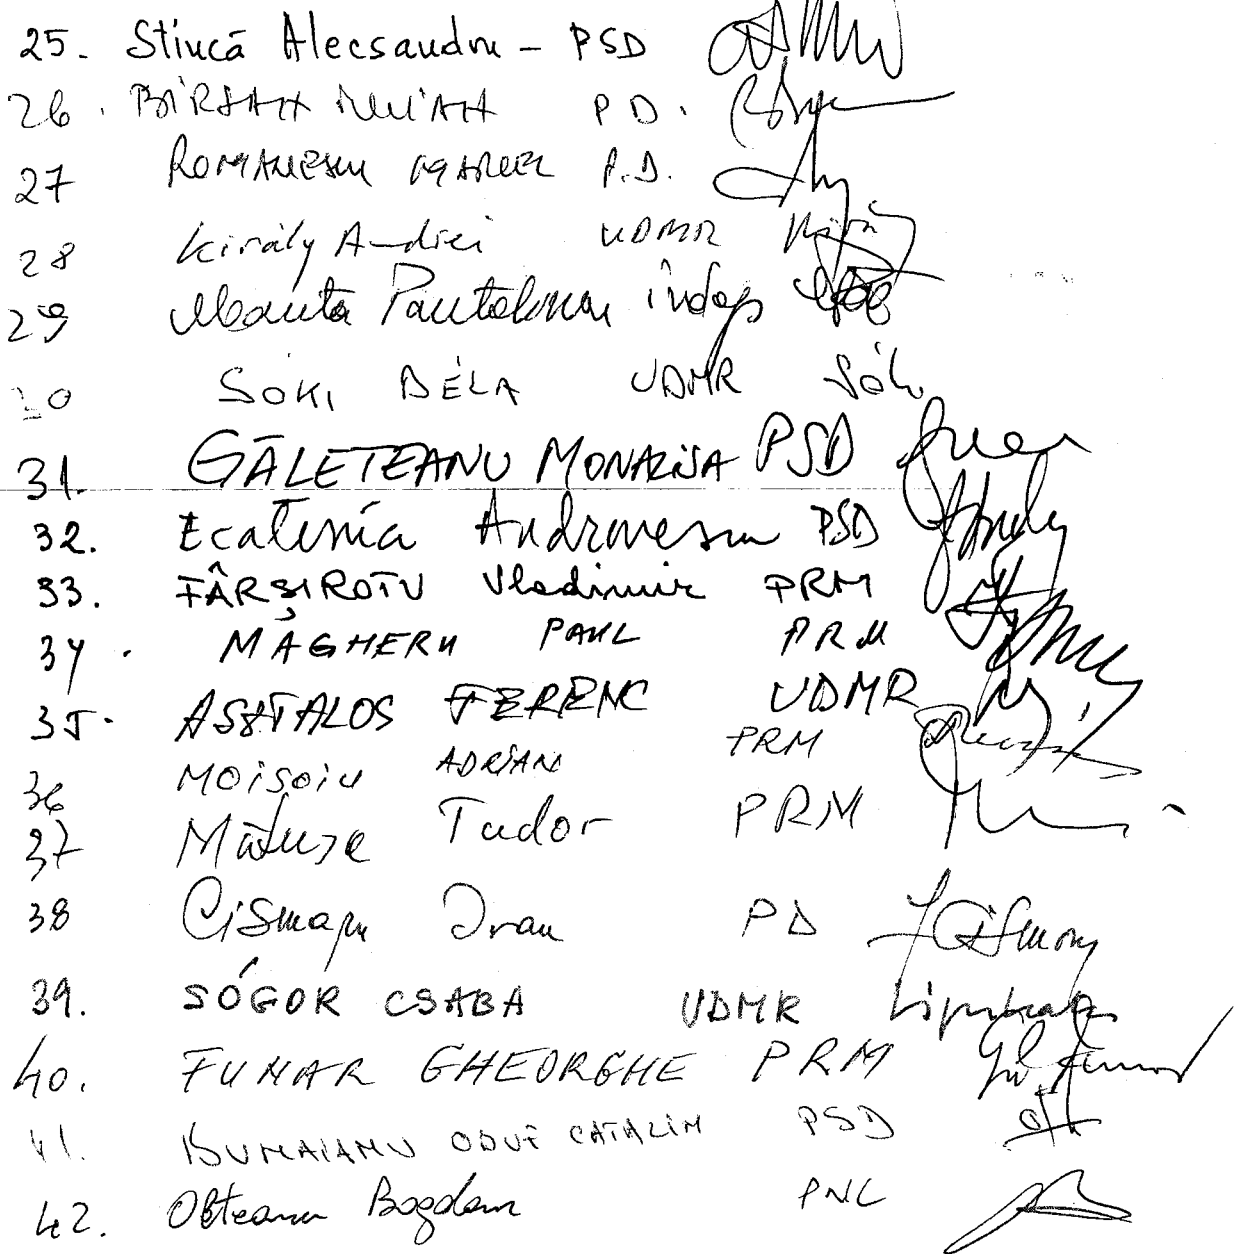 25. Stiucă Alecsandru - PSD
26. BÎRSAN IULIAN P D.
27 ROMANESCU MARCEL P.D.
28 Király Andrei UDMR
29 Manta Pantelimon indep
30 SOKI BÉLA UDMR Sóki
31. GĂLETEANU MONALISA PSD
32. Ecaterina Andronescu PSD
33. FÂRȘIROTU Vladimir PRM
34. MAGHERU PAUL PRM
35. ASZTALOS FERENC UDMR
36 MOISOIU ADRIAN PRM
37 Mătușa Tudor PRM
38 Cismaru Ivan PD
39. SÓGOR CSABA UDMR
40. FUNAR GHEORGHE PRM Gh Funar
41. BUMAIANU ODUT CATALIN PSD
42. Olteanu Bogdan PNL